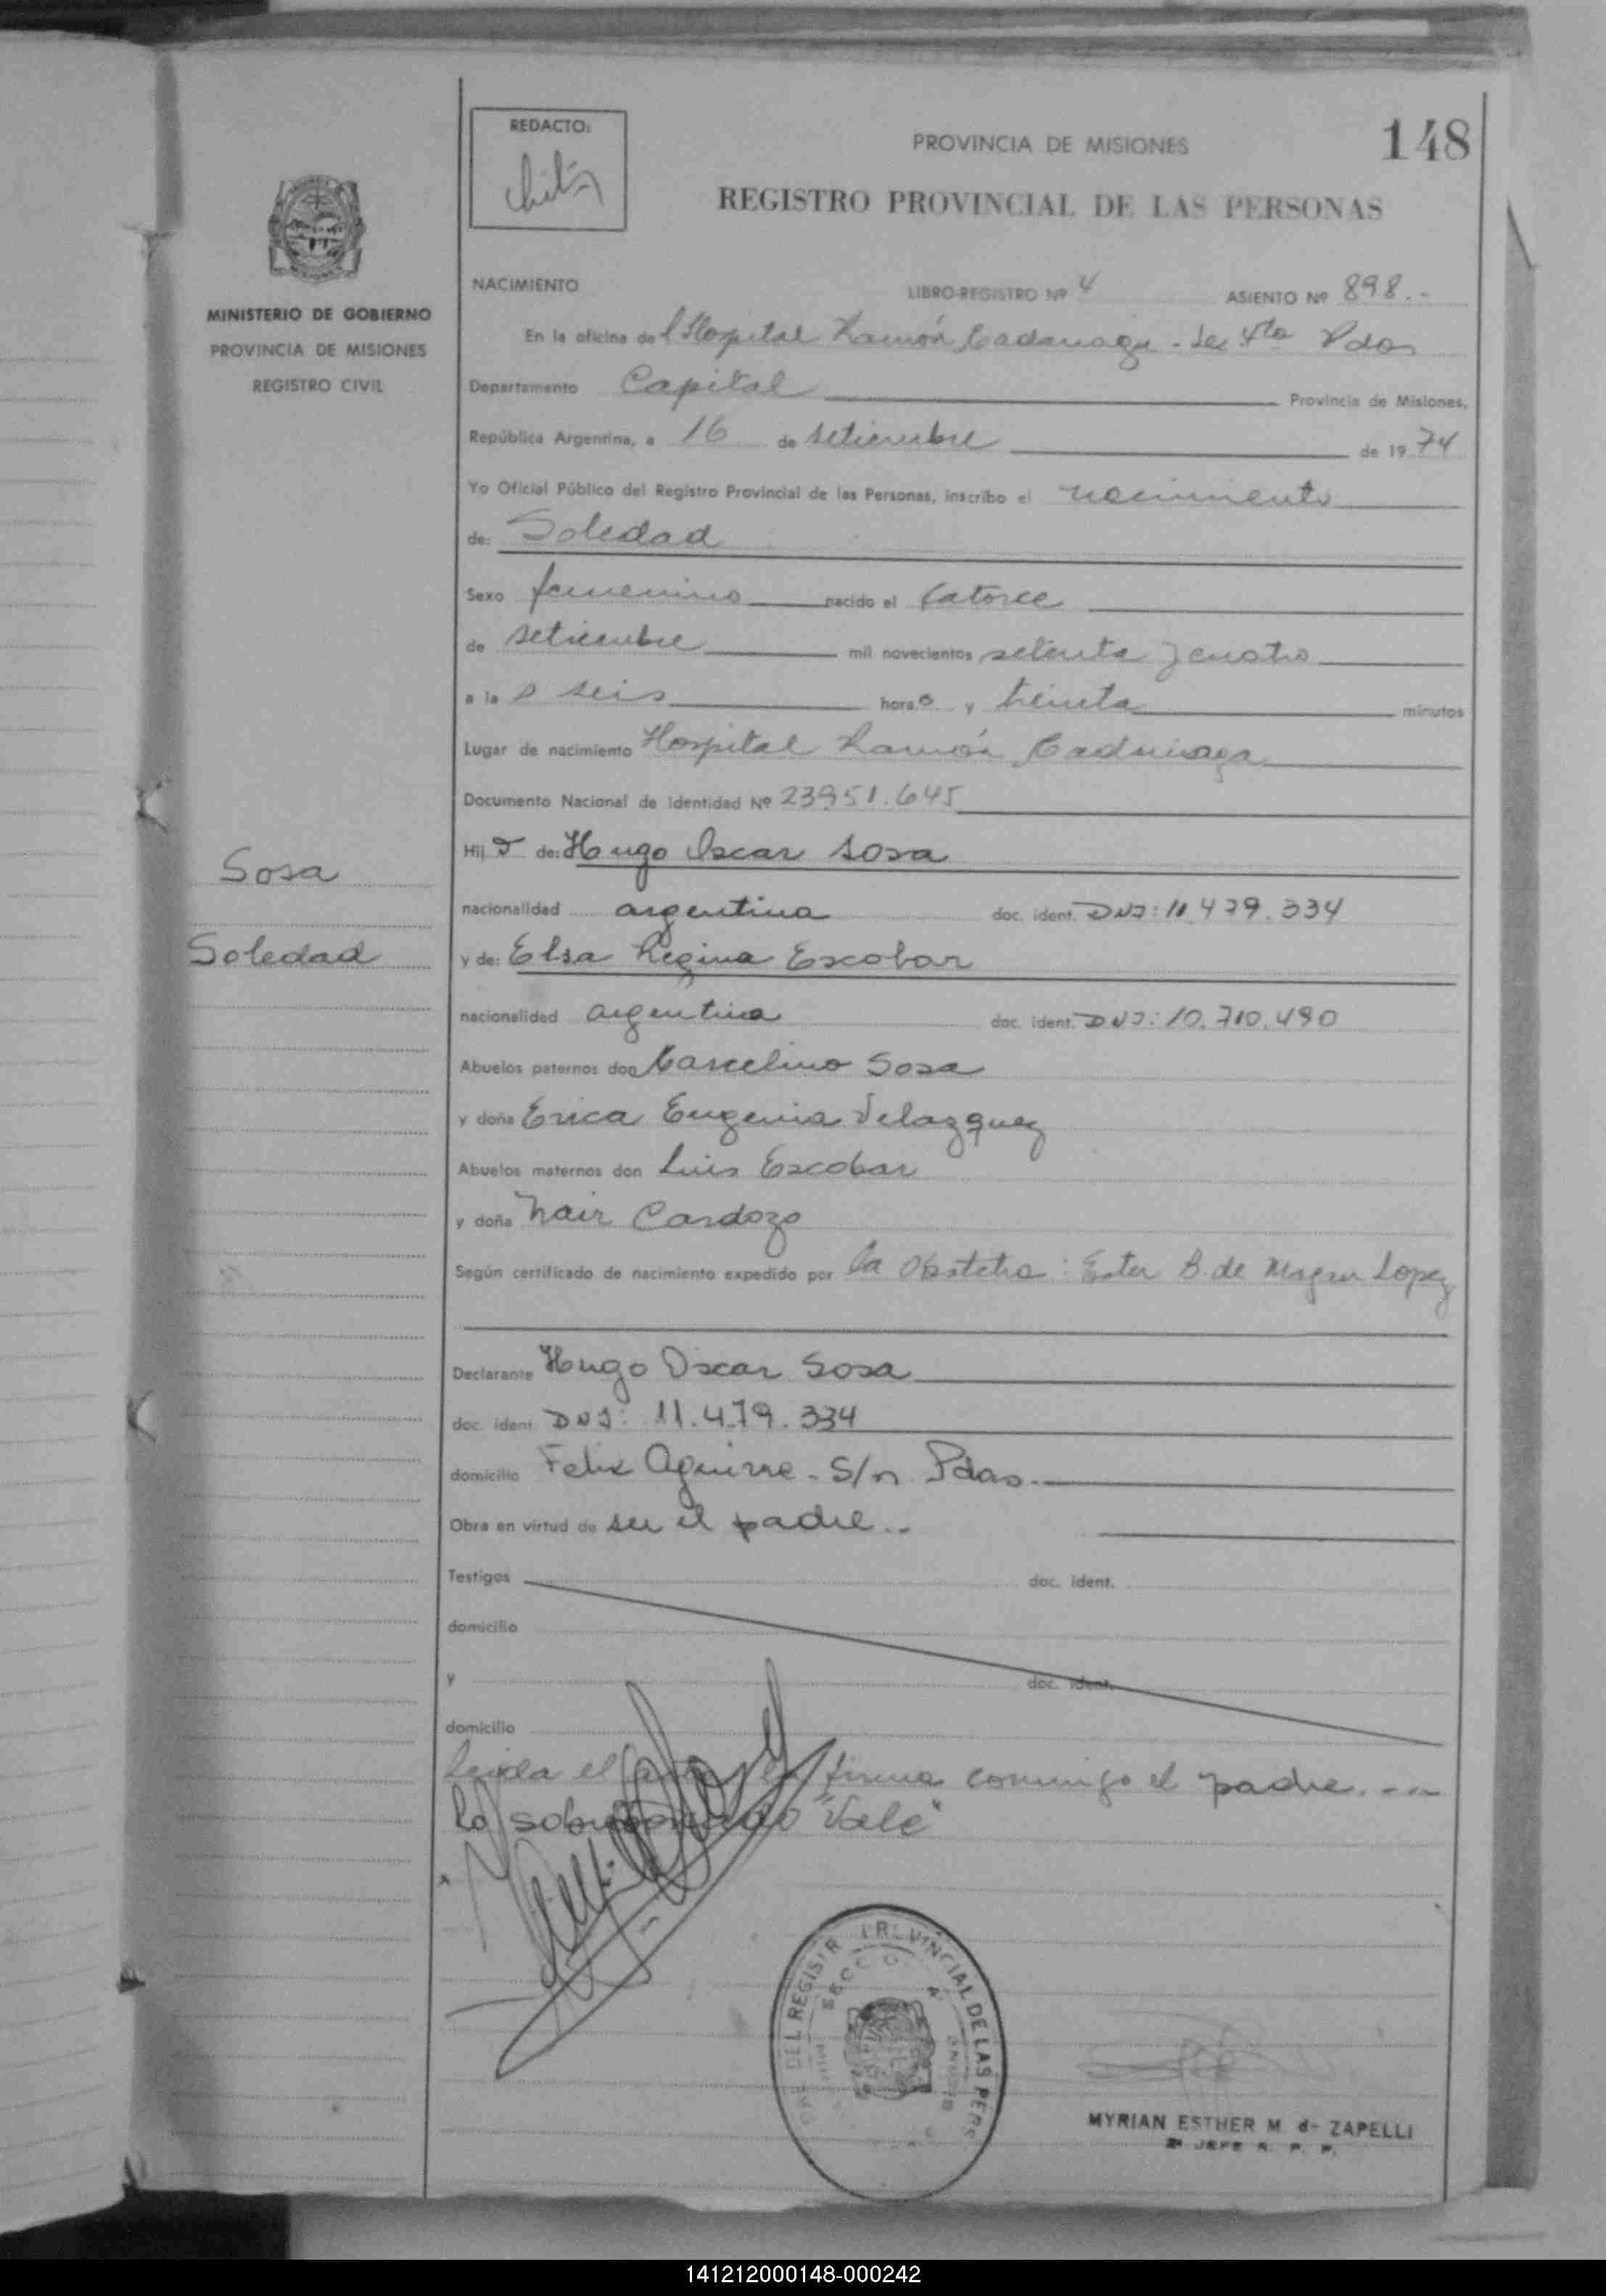 REDACTO:
148
PROVINCIA DE MISIONES
REGISTRO PROVINCIAL DE LAS PERSONAS
MINISTERIO DE GOBIERNO
PROVINCIA DE MISIONES
REGISTRO CIVIL
NACIMIENTO LIBRO-REGISTRO Nº 4 ASIENTO Nº 898.-
En la oficina del Hospital Ramón Pdas
Departamento Capital Provincia de Misiones,
República Argentina, a 16 de setiembre de 1974
Yo Oficial Público del Registro Provincial de las Personas, inscribo el nacimiento
de: Soledad
Sexo femenino nacido el catorce
de setiembre mil novecientos setenta y cuatro
a las seis horas y treinta minutos
Lugar de nacimiento Hospital Ramón
Documento Nacional de Identidad Nº 23951.645
Hija de: Hugo Oscar Sosa
Sosa
nacionalidad argentina doc. ident. DNI: 11.479.334
Soledad
y de: Elsa Regina Escobar
nacionalidad argentina doc. ident. DNI: 10.710.490
Abuelos paternos don Marcelino Sosa
y doña Erica Eugenia Velazquez
Abuelos maternos don Luis Escobar
y doña Nair Cardozo
Según certificado de nacimiento expedido por la Obstetra: Ester B. de Lopez
Declarante Hugo Oscar Sosa
doc. ident. DNI: 11.479.334
domicilio Felix Aguirre - S/n Pdas.
Obra en virtud de ser el padre..
Testigos doc. ident.
domicilio
y doc. ident.
domicilio
Leida el acta la firma conmigo el padre.--
Lo sobreborrado "Vale"
DEL REGISTR PROVINCIAL DE LAS PERS
MYRIAN ESTHER M. de ZAPELLI
JEFE R. P. P.
141212000148-000242